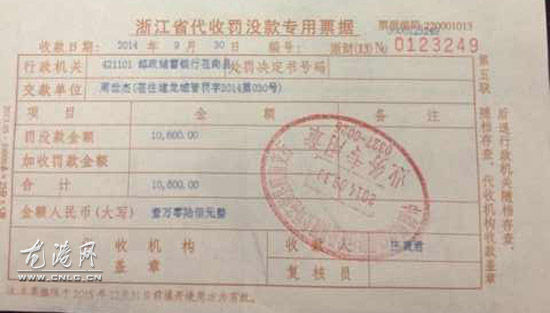 浙江省代收罚没款专用票据
票据编码 220001013
收款日期: 2014 年 9月 30 日 编号: 浙财(13) № 0123249
行政机关 421101 邮政储蓄银行苍南县 处罚决定书号码
交款单位 周世杰(苍住建龙城管罚字2014第030号)
项 目 金 额 备 注
罚没款金额 10,800.00
加收罚款金额
合 计 10,800.00
金额人民币(大写)
收机构 收款人
盖章 复核员
第五联
后送行政机关随档存查
随档存查,代收机构收款盖章
业务专用章
2014.09.30
龙湾网
WWW.CNLG.CN